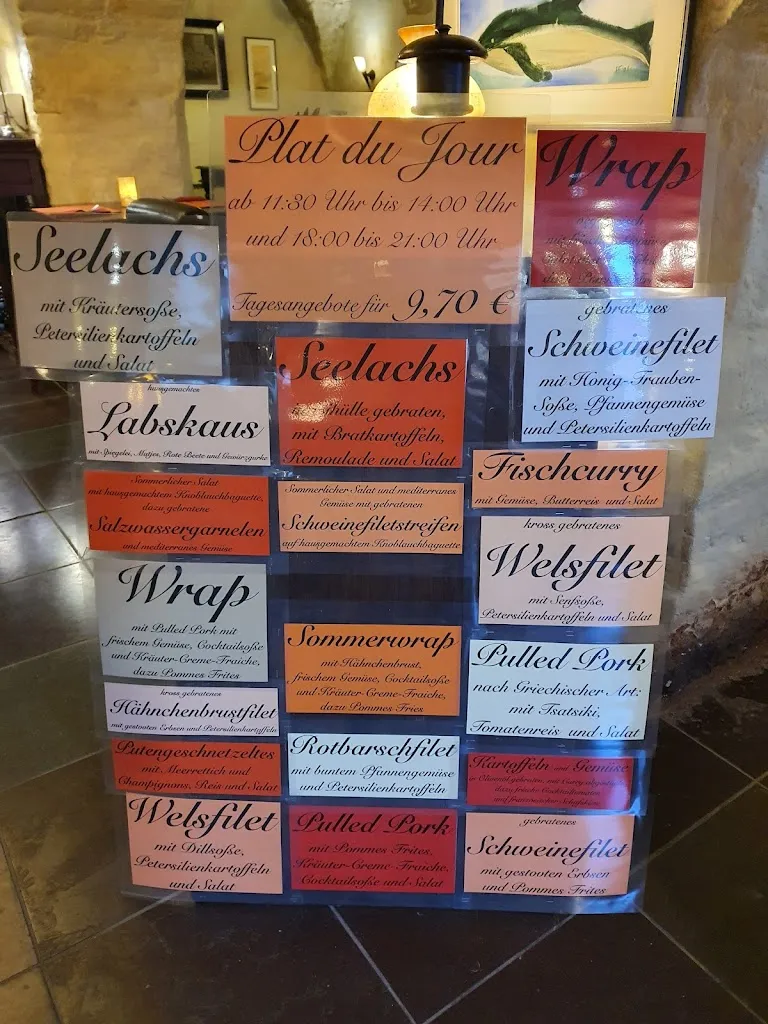 Plat du Jour
ab 11:30 Uhr bis 14:00 Uhr
und 18:00 bis 21:00 Uhr
Tagesangebote für 9,70 €
Wrap
Seelachs
mit Kräutersoße,
Petersilienkartoffeln
und Salat
gebratenes
Schweinefilet
mit Honig-Trauben-
Soße, Pfannengemüse
und Petersilienkartoffeln
Seelachs
gebraten,
mit Bratkartoffeln,
Remoulade und Salat
hausgemachtes
Labskaus
mit Spiegelei, Matjes, Rote Beete und Gewürzgurke
Fischcurry
mit Gemüse, Butterreis und Salat
Sommerlicher Salat
mit hausgemachtem Knoblauchbaguette,
dazu gebratene
Salzwassergarnelen
und mediterranes Gemüse
Sommerlicher Salat und mediterranes
Gemüse mit gebratenen
Schweinefiletstreifen
auf hausgemachtem Knoblauchbaguette
kross gebratenes
Welsfilet
mit Senfsoße,
Petersilienkartoffeln und Salat
Wrap
mit Pulled Pork mit
frischem Gemüse, Cocktailsoße
und Kräuter-Creme-Fraiche,
dazu Pommes Frites
Sommerwrap
mit Hähnchenbrust,
frischem Gemüse, Cocktailsoße
und Kräuter-Creme-Fraiche,
dazu Pommes Fries
Pulled Pork
nach Griechischer Art:
mit Tsatsiki,
Tomatenreis und Salat
kross gebratenes
Hähnchenbrustfilet
mit gestouten Erbsen und Petersilienkartoffeln
Rotbarschfilet
mit buntem Pfannengemüse
und Petersilienkartoffeln
Putengeschnetzeltes
mit Meerrettich und
Champignons, Reis und Salat
Kartoffeln und Gemüse
Welsfilet
mit Dillsoße,
Petersilienkartoffeln
und Salat
Pulled Pork
mit Pommes Frites,
Kräuter-Creme-Fraiche,
Cocktailsoße und Salat
gebratenes
Schweinefilet
mit gestouten Erbsen
und Pommes Frites